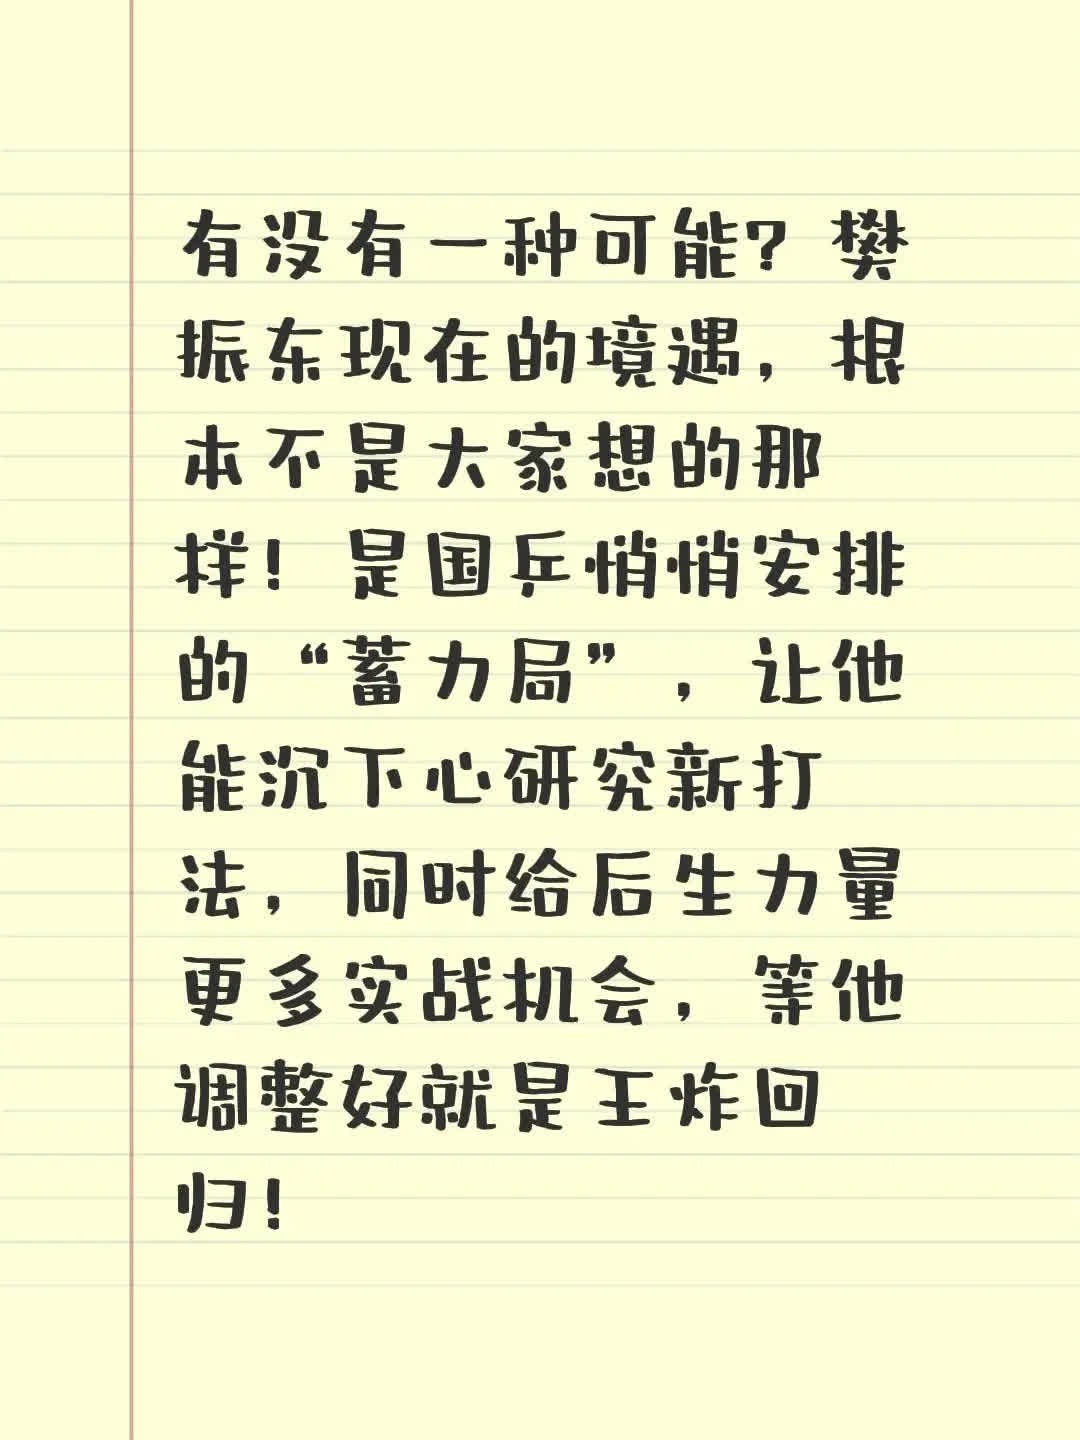 有没有一种可能？樊
振东现在的境遇，根
本不是大家想的那
样！是国乒悄悄安排
的“蓄力局”，让他
能沉下心研究新打
法，同时给后生力量
更多实战机会，等他
调整好就是王炸回
归！